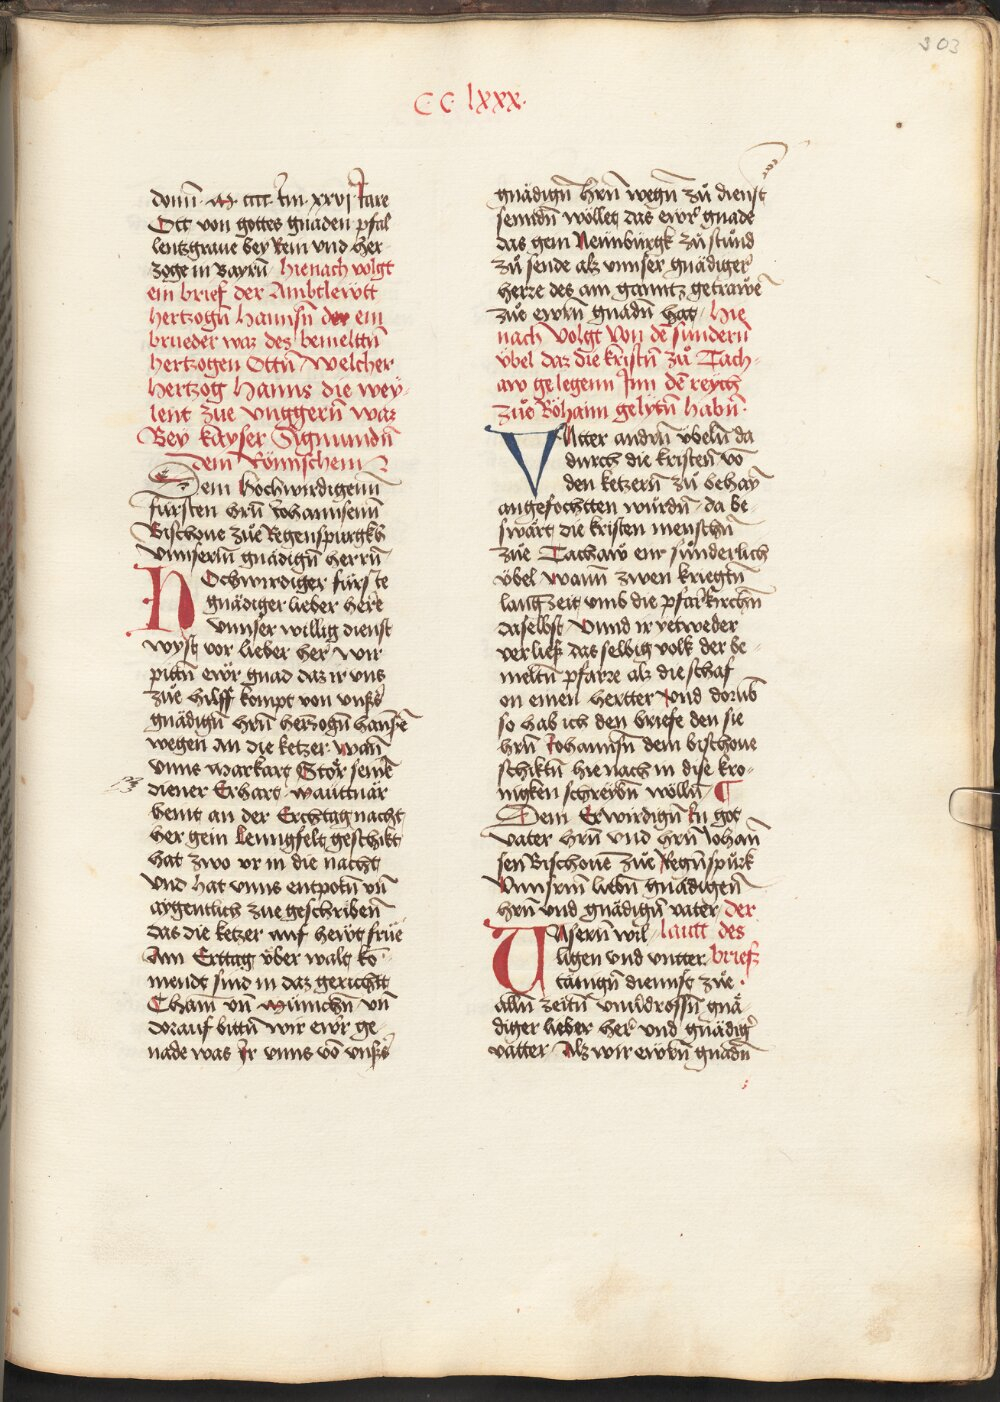 303
CC lxxx·
domī · M · cccc · Im · xxvj Jare
Ott von gottes gnaden pfal
lentzgraue bey Rein vnd her
zoge in Bayrn̄ · hienach volgt
ein brief der Ambtlewtt
hertzogn̄ Hannsn̄ der ein
brueder waz des bemeltn̄
hertzogen Ottn̄ / Welcher
hertzog Hanns die wey-
lent zue Vnggern̄ waz
Bey kayser Sigmundn̄
dem Römischem
Dem Hochwirdigenn
fürsten hrn̄ Johannsenn
Bischoue zůe Regenspurgkh
Vnnserm̄ gnädign̄ herrn̄
HOchwirdiger fürste
gnädiger lieber here
Vnnser willig dienst
wysst vor lieber her̄ wir
pittn̄ ewr̄ gnad daz ir vns
zůe hilff kompt von vnsers
gnädign̄ hrn̄ hertzogn̄ hannsē
wegen an die ketzer wan̄
vnns Markart Stör seinē
diener Erhart Mauttnär
hewt an der Erchtag nacht
her gein Lenngfelt geschikt
hat zwo vr in die nacht
vnd hat vnns entpotn̄ vn̄
aygentlich zue geschriben̄
das die ketzer auf hewt früe
Am Erttag über walt ko-
mendt sind in daz gericht
Cham̄ vn̄ Münichn̄ vn̄
dorauf bittn̄ wir ewr̄ ge-
nade was Ir vnns vō vnsers
gnädign̄ hrn̄ wegn̄ zů dienst
senndn̄ wöllet das ewr̄ gnade
das gem Neünbürgk zů stůnd
zů sende alz vnnser gnädiger
herre des am ganntz getrawē
zůe ewrn̄ gnadn̄ hat / hie
nach volgt von dē sundern̄
vbel daz die kristn̄ zů Tach-
aw gelegenn Jnn dē reych
zůe Böhaim gelytn̄ habn̄ ·
VNtter andrn̄ vbeln̄ da
durch die kristen̄ vō
den ketzern̄ zů behay̅
angefochtten würdn̄ · da be-
swärt die kristen menschn̄
zůe Tachaw eyr sunderlich
vbel wann zwen kriegtn̄
lanng Zeit vmb die pfarkirchn̄
daselbst · Vnnd ir yetweder
verließ das selbig volk der be-
meltn̄ pfarre alz die schaf
on einen hertter vnd dorůb
so hab ich den briefe den sie
hrn̄ Johannsn̄ dem bischoue
schiktn̄ hie nach in dise kro-
nigken schreibn̄ wölln̄ / ¶
Dem Erwirdign̄ In got
vater hrn̄ vnd hrn̄ Johan̄
sen Bischoue zůe Regn̄spürk
Vnnsrm̄ liebn̄ gnädigen̄
hrn̄ vnd gnädign̄ vater · der
VNsern̄ wil- lautt des
ligen vnd vntter- briefs
tänign̄ diennst zůe ·
alln̄ zeitn̄ vnůdrossn̄ gnä-
diger lieber her̄ vnd gnädig̾
vatter / Alz wir ewrn̄ gnadn̄